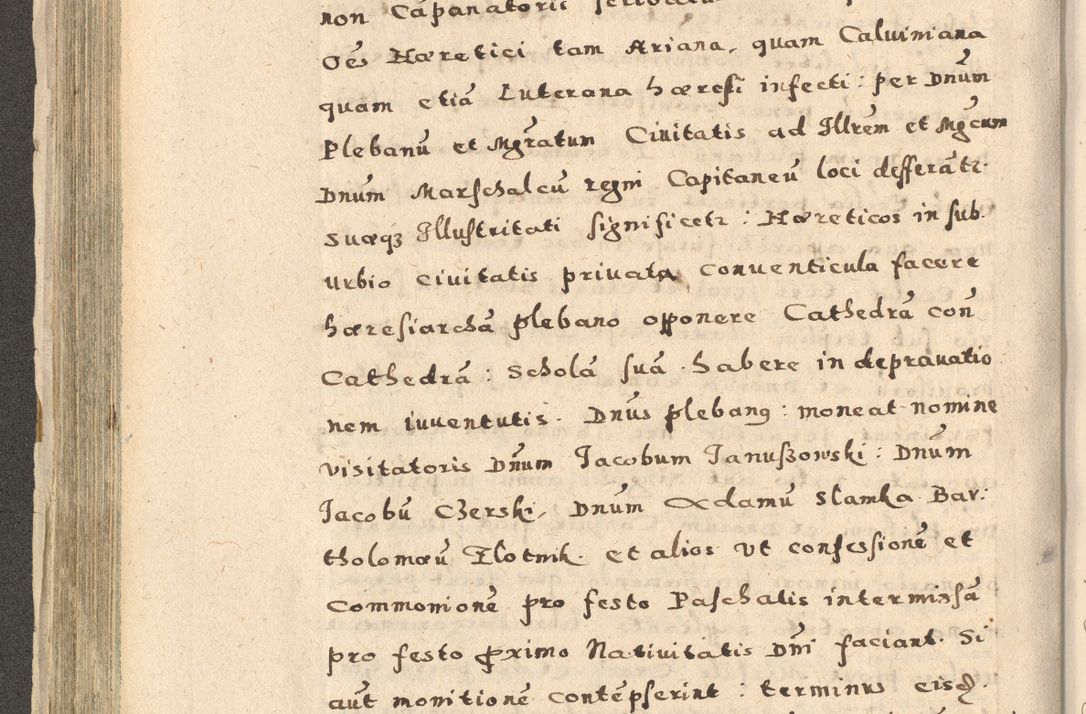 non Capanatorii
Oēs Hæretici tam Ariana, quam Caluiniana
quam etiā Luterana hæresi infecti: per Dnūm
Plebanū et Mgr̄atum Ciuitatis ad Illrēm et Mgcum
Dnūm Marschalcū regni Capitaneū loci defferātr.
suæq3 Illustritati significetr: Hæreticos in sub.
urbio ciuitatis priuata conuenticula facere
hæresiarchā plebano opponere Cathedrā con̄
Cathedrā: Scholā suā habere in deprauatio
nem iuuentutis. Dnūs plebanꝯ: moneat nomine
visitatoris Dnūm Jacobum Januszowski: Dnūm
Jacobū Czerski, Dnūm Adamū Slamka Bar:
tholomæū Plotnik. et alios vt confessionē et
Commonionē pro festo Paschatis intermissā
pro festo proximo Natiuitatis Dnī faciant. Si
aūt monitionē contēpserint: terminus eisd.